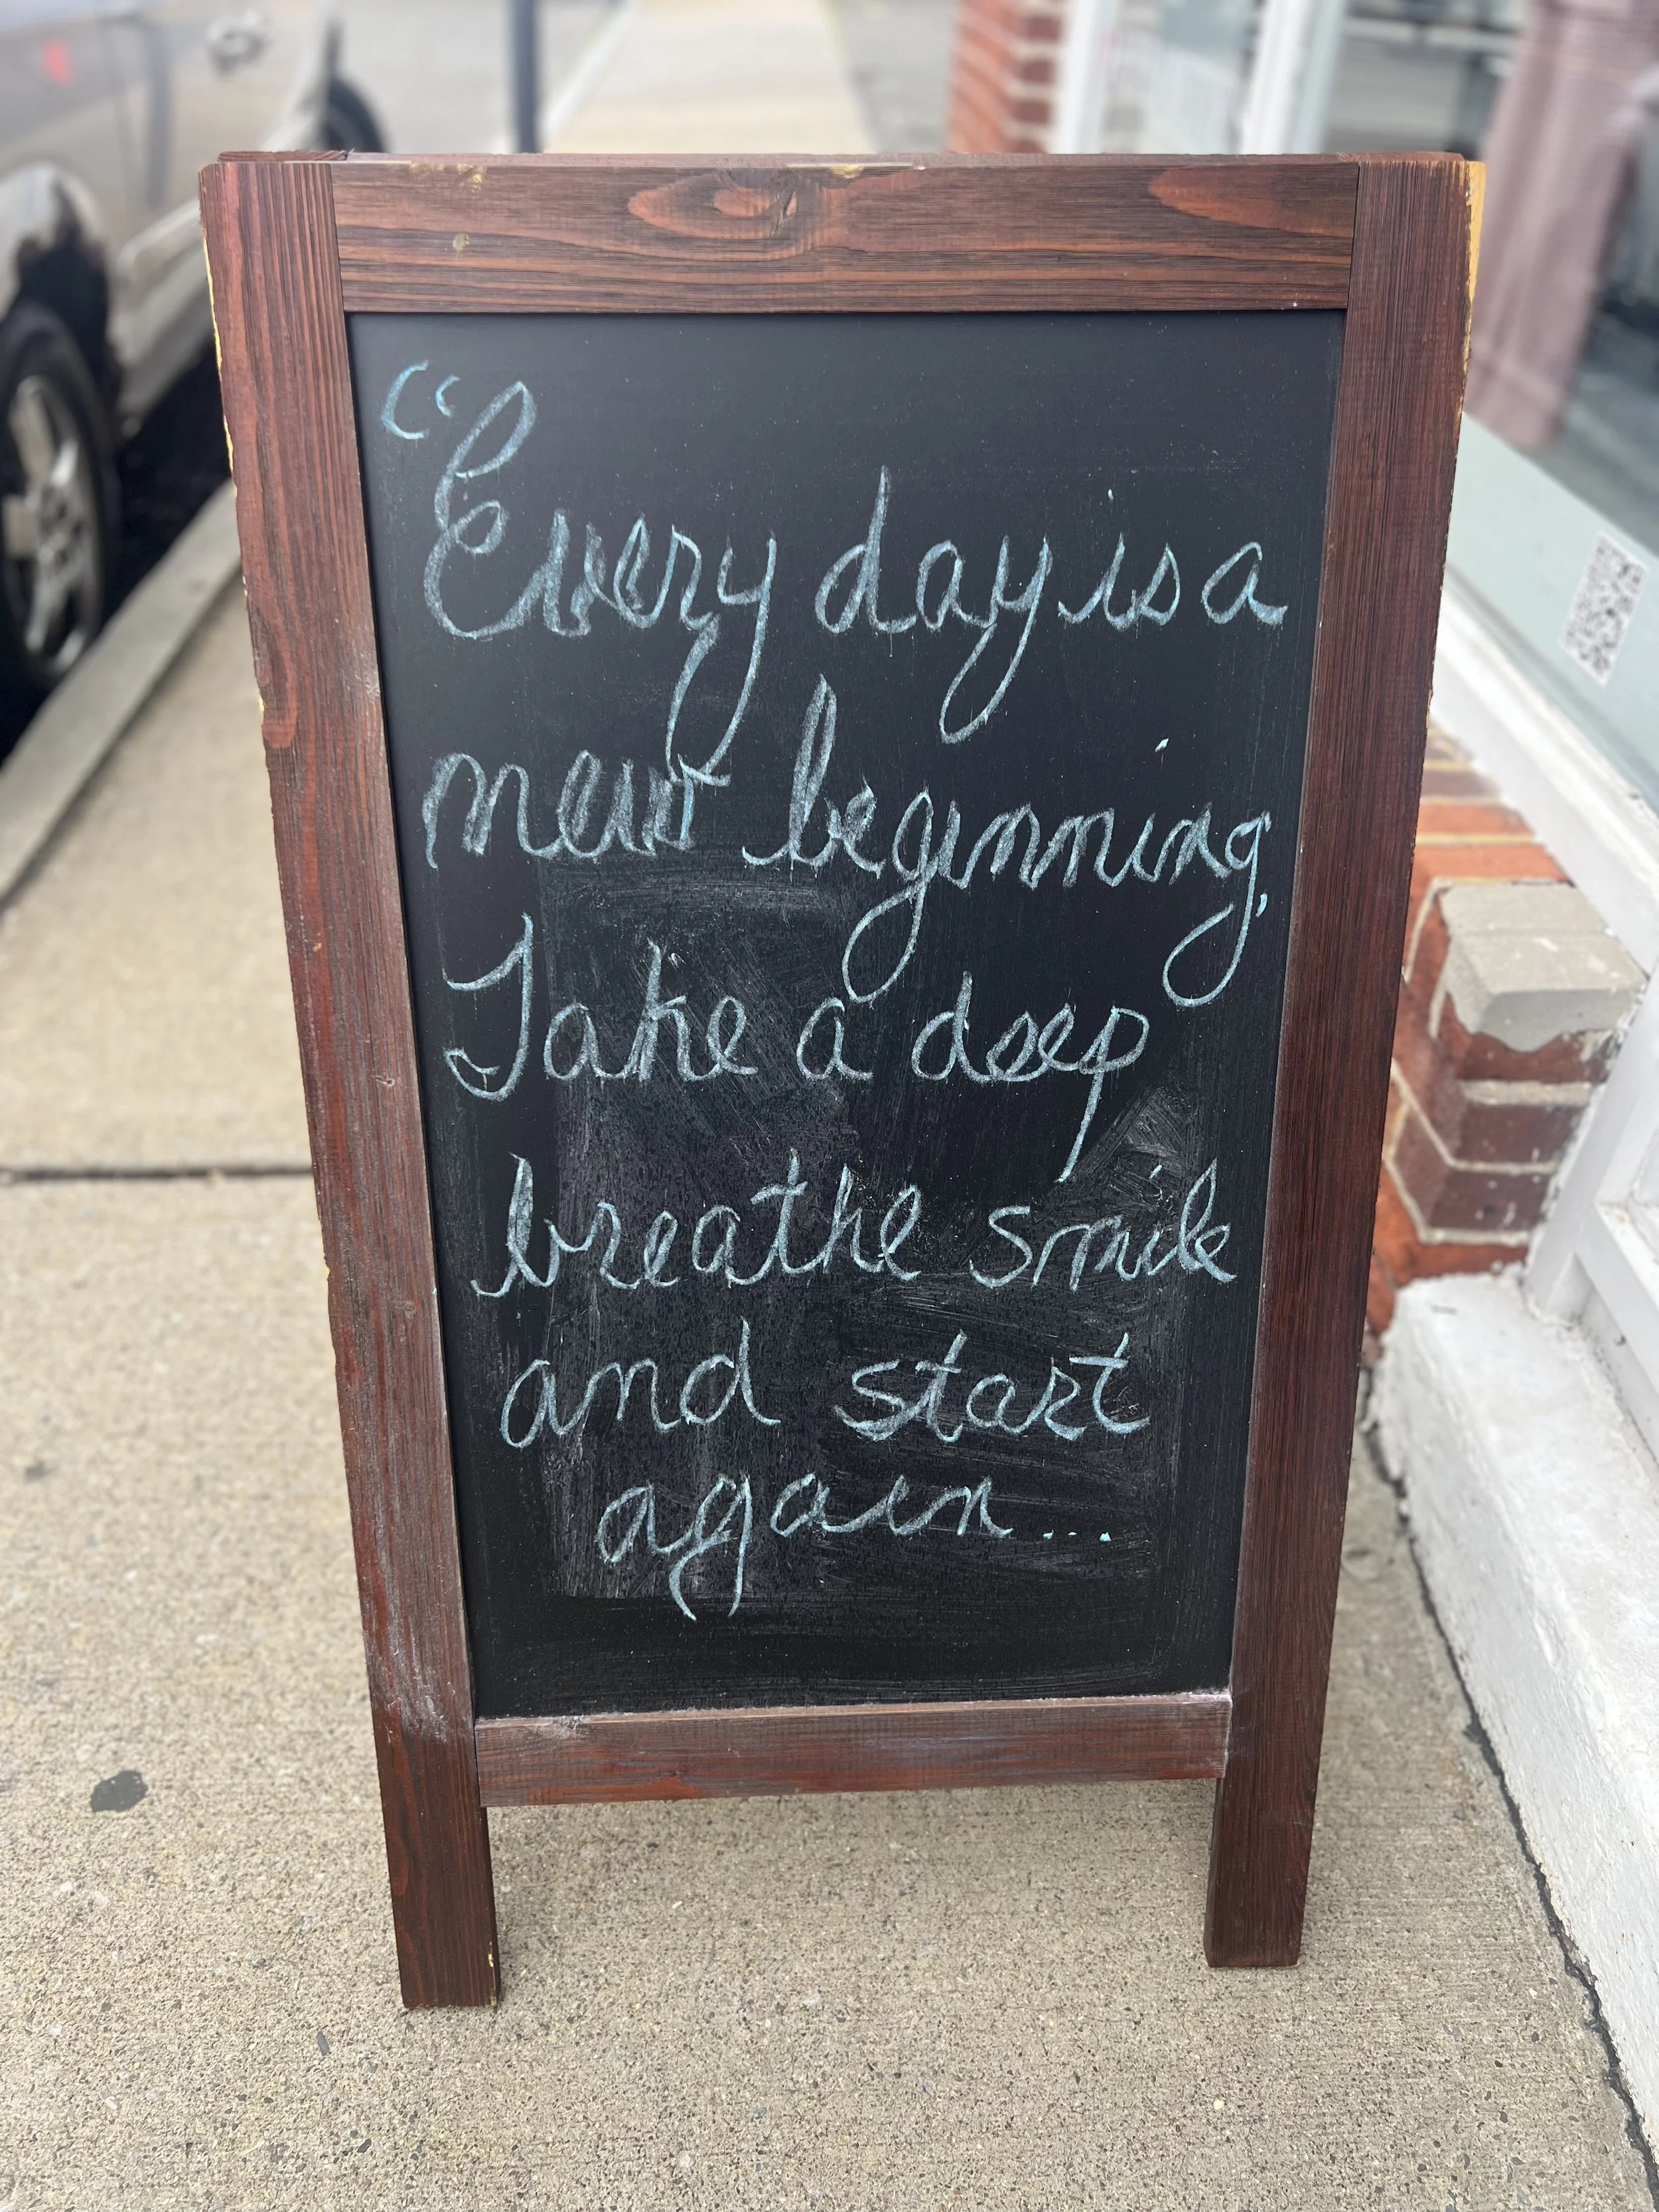 “Every day is a
new beginning,
Take a deep
breathe smile
and start
again...